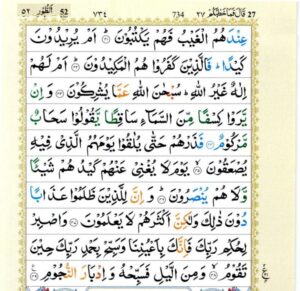 ٥٢ اَلطُّوْر 52 ٧٣٤ 734 ٢٧ قَالَ فَمَا خَطْبُكُمْ 27
عِنْدَهُمُ الْغَيْبُ فَهُمْ يَكْتُبُوْنَ ۞ اَمْ يُرِيْدُوْنَ
كَيْدًا ؕ فَالَّذِيْنَ كَفَرُوْا هُمُ الْمَكِيْدُوْنَ ۞ اَمْ لَهُمْ
اِلٰهٌ غَيْرُ اللّٰهِ ؕ سُبْحٰنَ اللّٰهِ عَمَّا يُشْرِكُوْنَ ۞ وَ اِنْ
يَّرَوْا كِسْفًا مِّنَ السَّمَآءِ سَاقِطًا يَّقُوْلُوْا سَحَابٌ
مَّرْكُوْمٌ ۞ فَذَرْهُمْ حَتّٰى يُلٰقُوْا يَوْمَهُمُ الَّذِيْ فِيْهِ
يُصْعَقُوْنَ ۞ يَوْمَ لَا يُغْنِيْ عَنْهُمْ كَيْدُهُمْ شَيْـًٔا
وَّ لَا هُمْ يُنْصَرُوْنَ ۞ وَ اِنَّ لِلَّذِيْنَ ظَلَمُوْا عَذَابًا
دُوْنَ ذٰلِكَ وَ لٰكِنَّ اَكْثَرَهُمْ لَا يَعْلَمُوْنَ ۞ وَ اصْبِرْ
لِحُكْمِ رَبِّكَ فَاِنَّكَ بِاَعْيُنِنَا وَ سَبِّحْ بِحَمْدِ رَبِّكَ حِيْنَ
تَقُوْمُ ۞ وَ مِنَ الَّيْلِ فَسَبِّحْهُ وَ اِدْبَارَ النُّجُوْمِ ۞